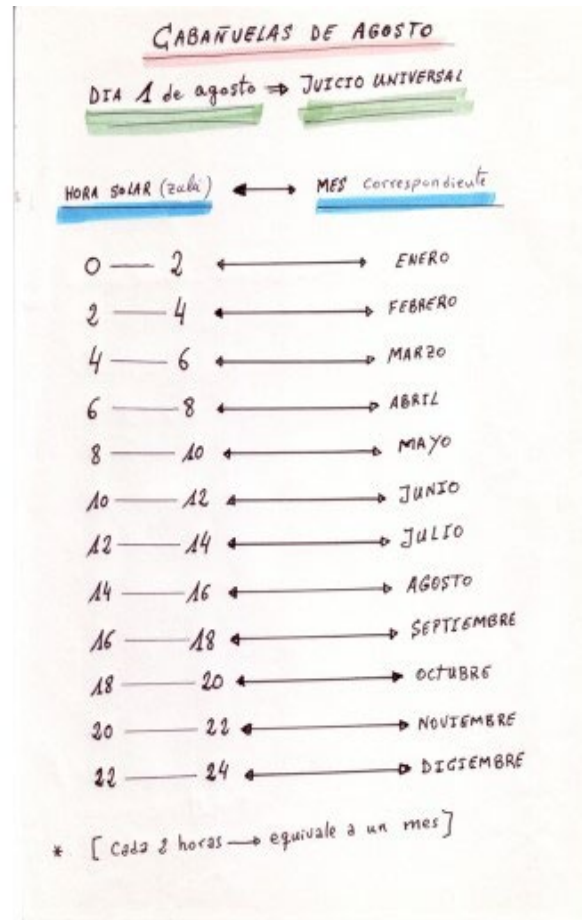 CABAÑUELAS DE AGOSTO
DIA 1 de agosto ⇒ JUICIO UNIVERSAL
HORA SOLAR (zulú) ↔ MES correspondiente
0 — 2 ↔ ENERO
2 — 4 ↔ FEBRERO
4 — 6 ↔ MARZO
6 — 8 ↔ ABRIL
8 — 10 ↔ MAYO
10 — 12 ↔ JUNIO
12 — 14 ↔ JULIO
14 — 16 ↔ AGOSTO
16 — 18 ↔ SEPTIEMBRE
18 — 20 ↔ OCTUBRE
20 — 22 ↔ NOVIEMBRE
22 — 24 ↔ DICIEMBRE
* [Cada 2 horas → equivale a un mes]